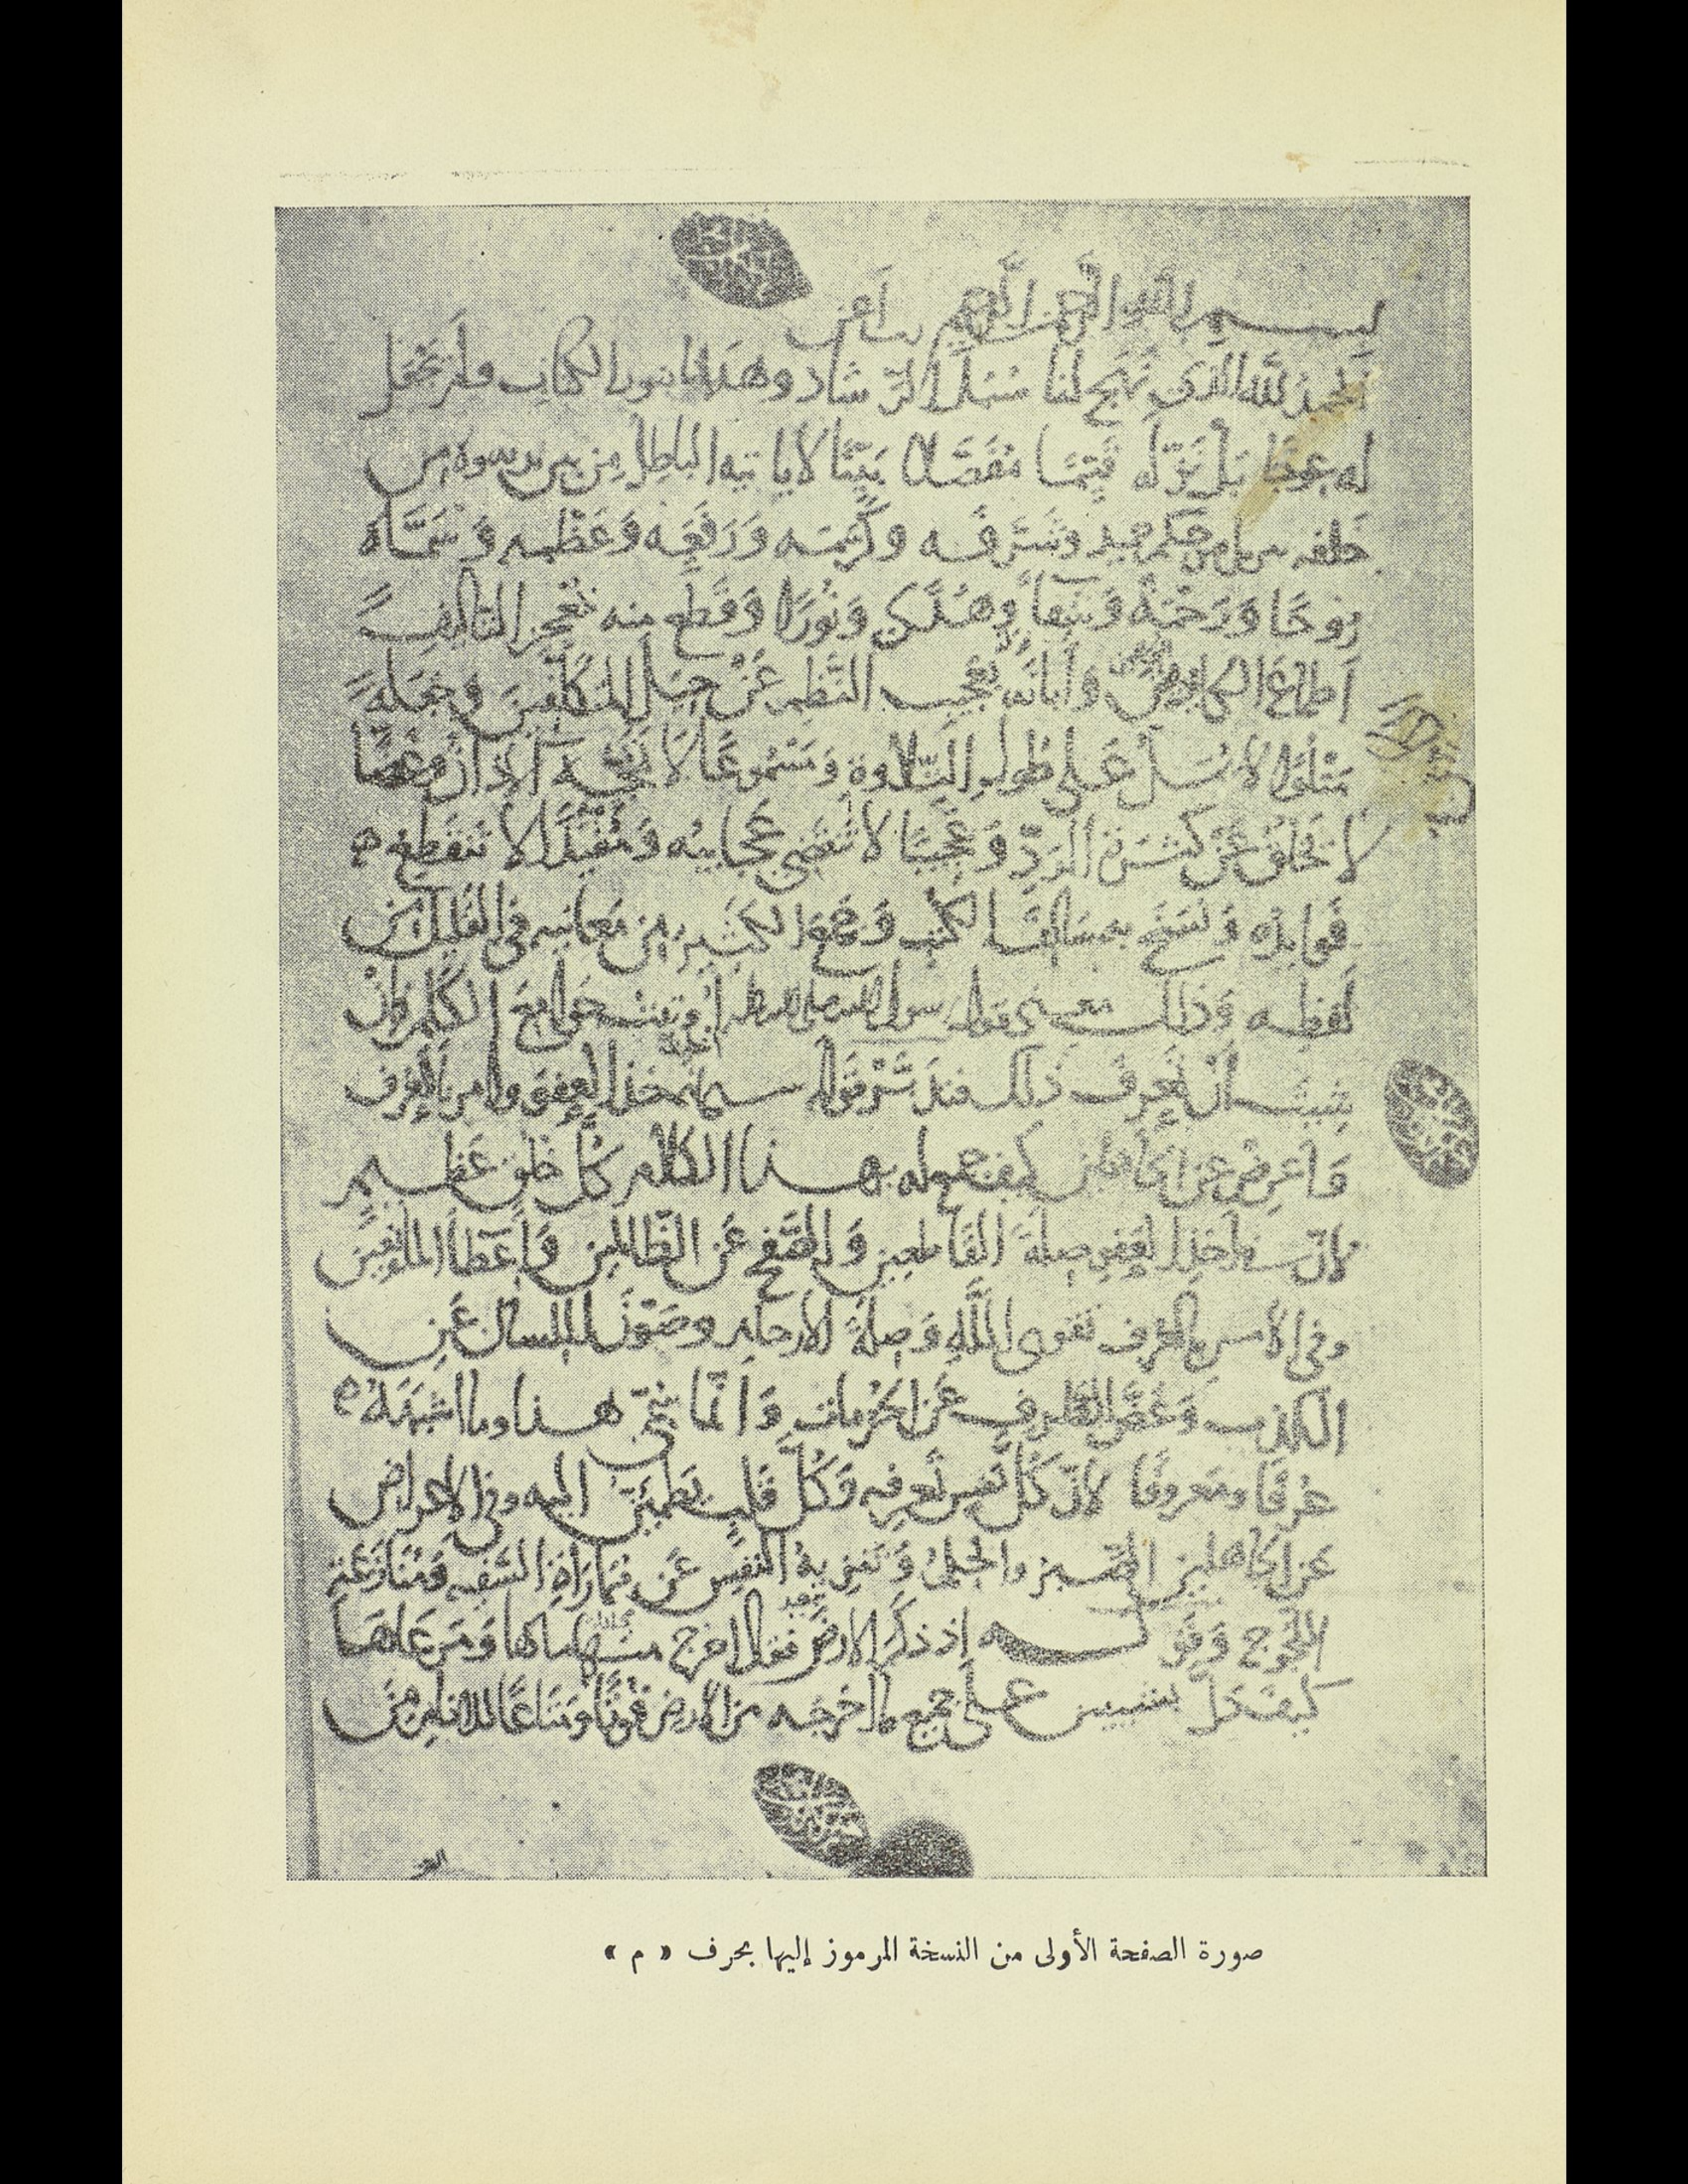 بسم الله الرحمن الرحيم رب أعن
الحمد لله الذي نهج لنا سبل الرشاد وهدانا بنور الكتاب ولم يجعل
له عوجا بل نزله قيما مفصلا بينا لا ياتيه الباطل من بين يديه ولا من
خلفه تنزيل من حكيم حميد وشرفه وكرمه ورفعه وعظمه وسماه
روحا ورحمة وشفاء وهدى ونورا وقطع منه بمعجز التاليف
اطماع الكايدين وأبانه بعجيب النظم عن حيل المتكلفين وجعله
متلوا لا يمل على طول التلاوة ومسموعا لا تمجه الاذان وغضا
لا يخلق عن كثرة الرد وعجيبا لا تنقضي عجايبه ومفيدا لا تنقطع
فوايده ونسخ به سالف الكتب وجمع الكثير من معانيه في القليل من
لفظه وذلك معنى قول رسول الله صلى الله عليه أوتيت جوامع الكلم فإن
شيت أن تعرف ذلك فتدبر قوله سبحانه خذ العفو وامر بالعرف
واعرض عن الجاهلين كيف جمع له بهذا الكلام كل خلق عظيم
لان في اخذ العفو صلة القاطعين والصفح عن الظالمين واعطا المانعين
وفي الامر بالعرف تقوى الله وصلة الارحام وصون اللسان عن
الكذب وغض الطرف عن الحرمات وانما سمي هذا وما اشبهه
عرفا ومعروفا لان كل نفس تعرفه وكل قلب يطمين اليه وفي الاعراض
عن الجاهلين الصبر والحلم وتنزيه النفس عن مماراة السفيه ومنازعة
اللجوج وقوله اذ ذكر الارض فقال اخرج منها ماءها ومرعاها
كيف دل بشيين على جميع ما اخرجه من الارض قوتا ومتاعا للانام من
صورة الصفحة الأولى من النسخة المرموز إليها بحرف « م »